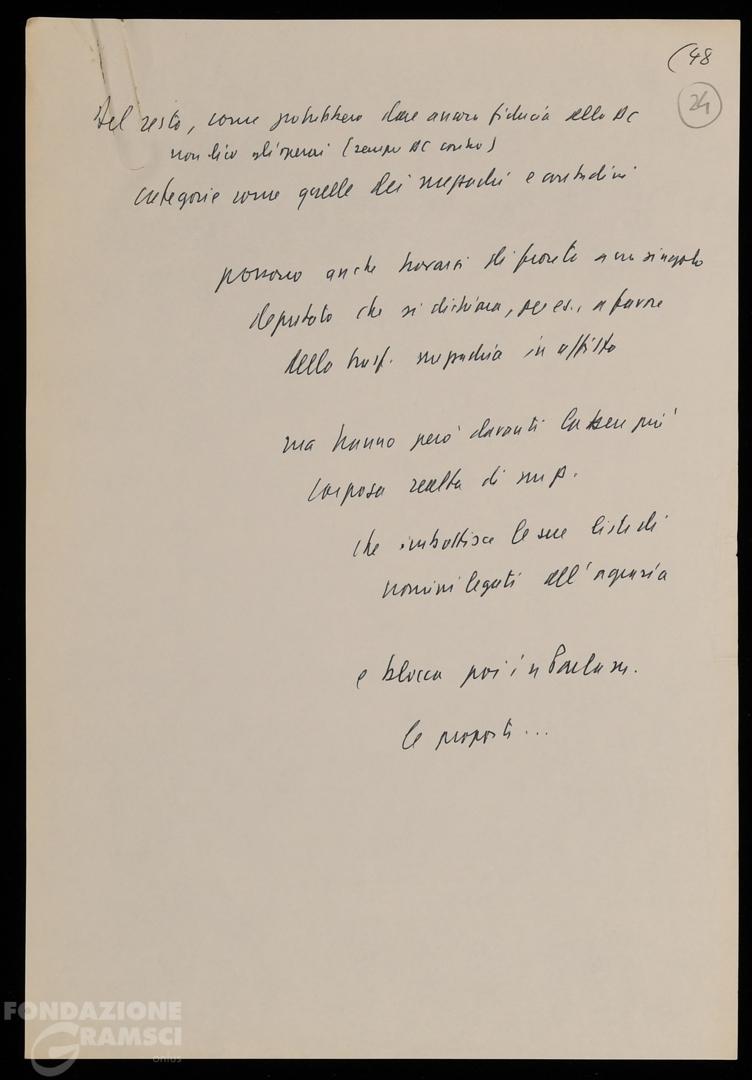 (48
24
Del resto, come potrebbero dare ancora fiducia alla DC
non dico gli operai (sempre DC contro)
categorie come quelle dei mezzadri e contadini
possono anche trovarsi di fronte a un singolo
deputato che si dichiara, per es., a favore
della trasf. mezzadria in affitto
ma hanno però davanti la ben più
corposa realtà di
che imbottisce le sue liste di
uomini legati all'agraria
e blocca poi in Parlam.
le proposte...
FONDAZIONE
GRAMSCI
onlus